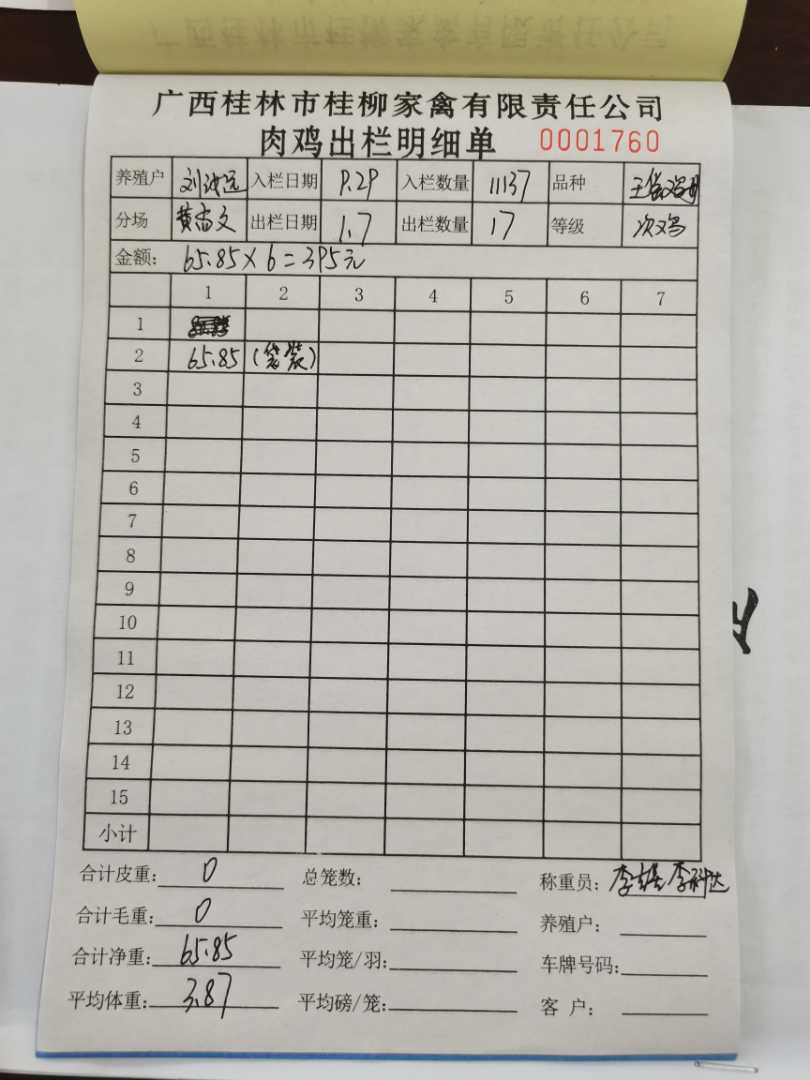 广西桂林市桂柳家禽有限责任公司
肉鸡出栏明细单 0001760
养殖户 入栏日期 9.29 入栏数量 11137 品种
分场 黄尚文 出栏日期 1.7 出栏数量 17 等级 次鸡
金额: 65.85×6=395元
1 2 3 4 5 6 7
1
2 65.85 (袋装)
3
4
5
6
7
8
9
10
11
12
13
14
15
小计
合计皮重: 0 总笼数: 称重员: 李雄 李科达
合计毛重: 0 平均笼重: 养殖户:
合计净重: 65.85 平均笼/羽: 车牌号码:
平均体重: 3.87 平均磅/笼: 客 户: